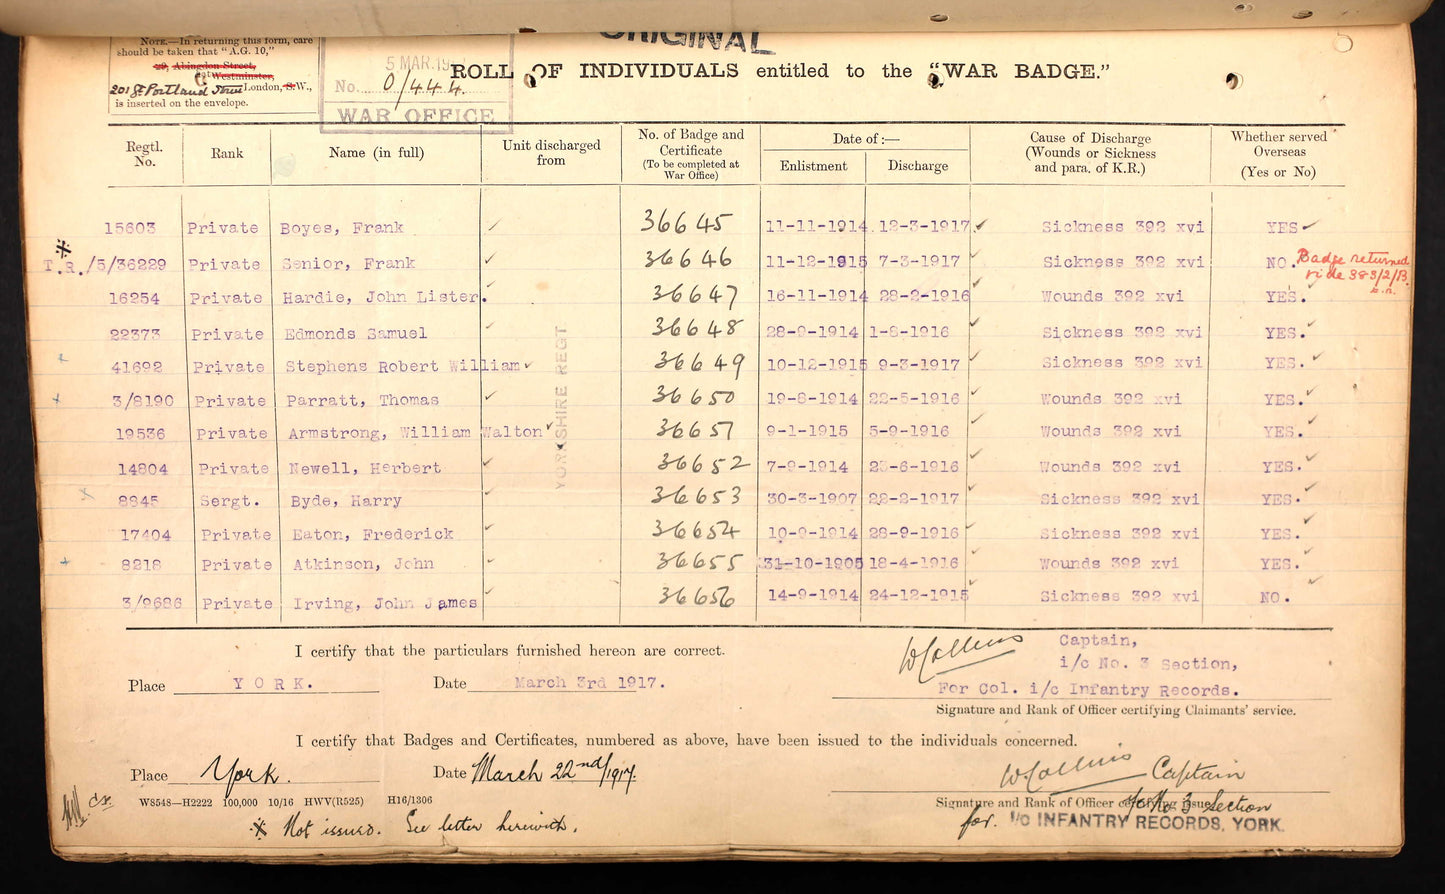 ORIGINAL
NOTE.—In returning this form, care
should be taken that "A.G. 10,"
29, Abingdon Street,
Westminster,
201 Gt Portland Street London, S.W.,
is inserted on the envelope.
5 MAR.19
No. 0/444.
WAR OFFICE
ROLL OF INDIVIDUALS entitled to the "WAR BADGE."
Regtl. No. Rank Name (in full) Unit discharged from No. of Badge and Certificate (To be completed at War Office) Date of:— Enlistment Discharge Cause of Discharge (Wounds or Sickness and para. of K.R.) Whether served Overseas (Yes or No)
15603 Private Boyes, Frank 36645 11-11-1914 12-3-1917 Sickness 392 xvi YES
T.R./5/36229 Private Senior, Frank 36646 11-12-1915 7-3-1917 Sickness 392 xvi NO. Badge returned
vide 383/2/B.
16254 Private Hardie, John Lister. 36647 16-11-1914 28-2-1916 Wounds 392 xvi YES.
22373 Private Edmonds Samuel 36648 28-9-1914 1-8-1916 Sickness 392 xvi YES.
41692 Private Stephens Robert William 36649 10-12-1915 9-3-1917 Sickness 392 xvi YES.
3/8190 Private Parratt, Thomas 36650 19-8-1914 22-5-1916 Wounds 392 xvi YES.
19536 Private Armstrong, William Walton 36651 9-1-1915 5-9-1916 Wounds 392 xvi YES.
14804 Private Newell, Herbert 36652 7-9-1914 23-6-1916 Wounds 392 xvi YES.
8845 Sergt. Byde, Harry 36653 30-3-1907 28-2-1917 Sickness 392 xvi YES.
17404 Private Eaton, Frederick 36654 10-9-1914 28-9-1916 Sickness 392 xvi YES.
8218 Private Atkinson, John 36655 31-10-1905 18-4-1916 Wounds 392 xvi YES.
3/9686 Private Irving, John James 36656 14-9-1914 24-12-1915 Sickness 392 xvi NO.
YORKSHIRE REGT
I certify that the particulars furnished hereon are correct.
Place YORK. Date March 3rd 1917.
W Collins Captain,
i/c No. 3 Section,
For Col. i/c Infantry Records.
Signature and Rank of Officer certifying Claimants' service.
I certify that Badges and Certificates, numbered as above, have been issued to the individuals concerned.
Place York. Date March 22nd/1917.
W Collins Captain
W8548—H2222 100,000 10/16 HWV(R525) H16/1306
Signature and Rank of Officer certifying issue
i/c No 3 Section
for. I/C INFANTRY RECORDS, YORK.
※ Not issued. See letter herewith.